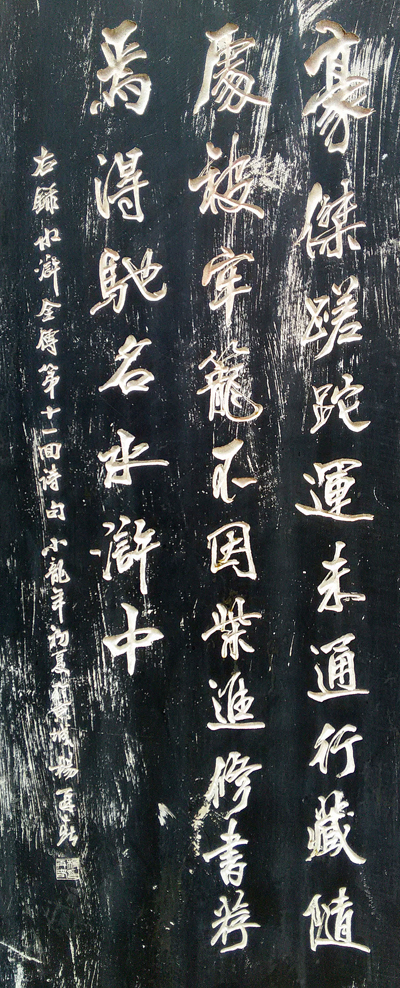 豪傑蹉跎運未通行藏隨
處被牢籠不因柴進修書荐
焉得馳名水滸中
右錄水滸全傳第十一回詩句小龍年初夏楊